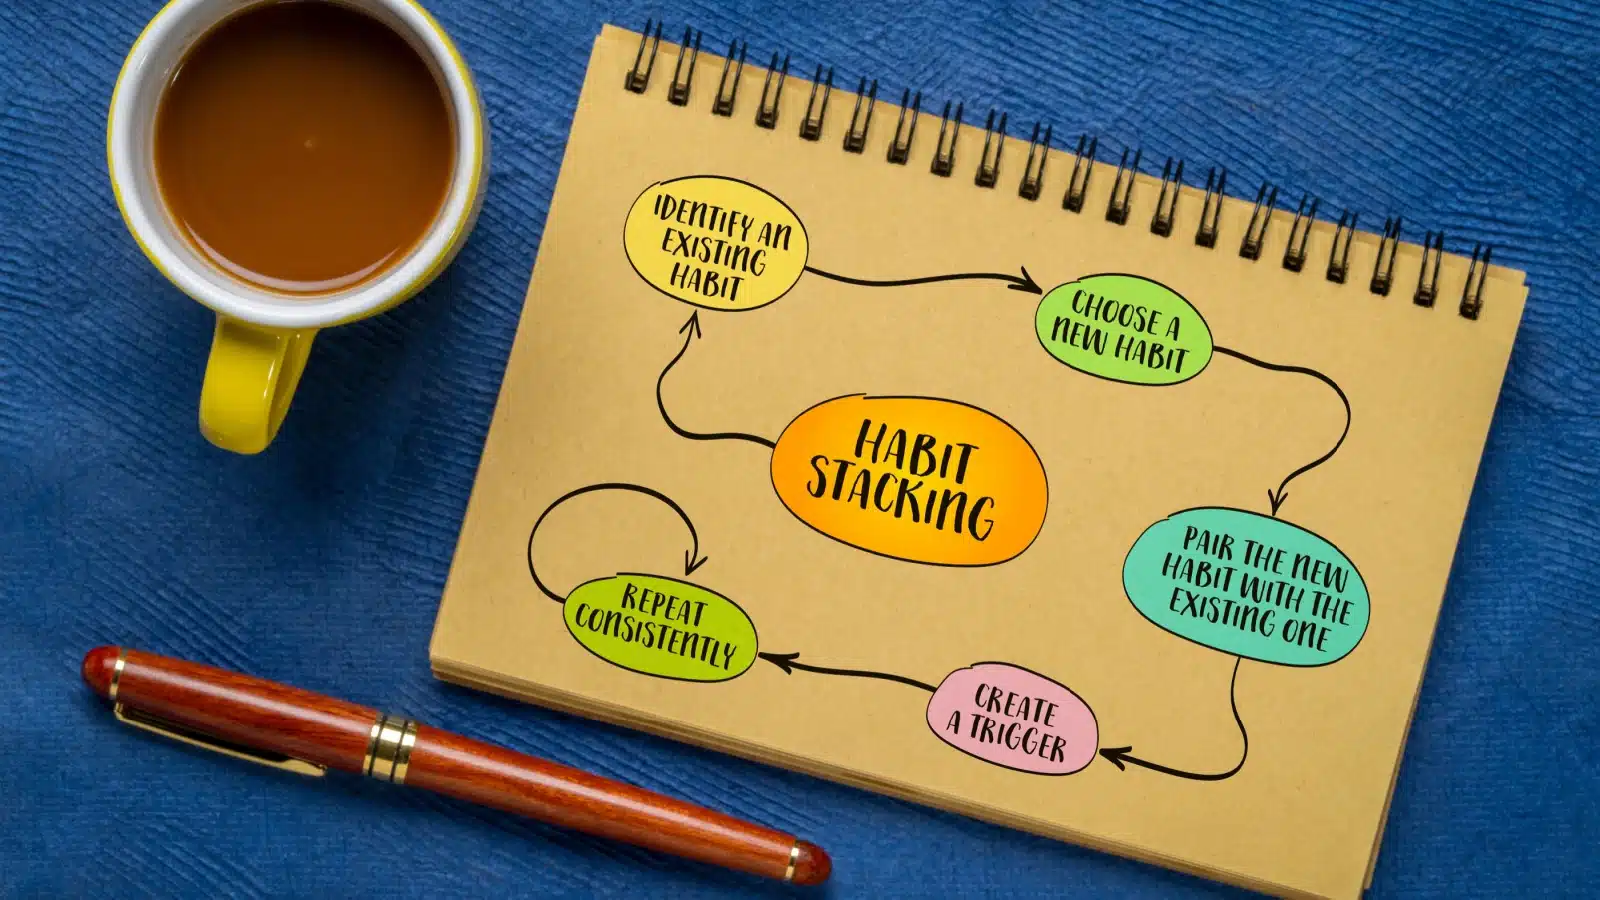 IDENTIFY AN
EXISTING
HABIT
CHOOSE A
NEW HABIT
HABIT
STACKING
PAIR THE NEW
HABIT WITH THE
EXISTING ONE
REPEAT
CONSISTENTLY
CREATE
A TRIGGER